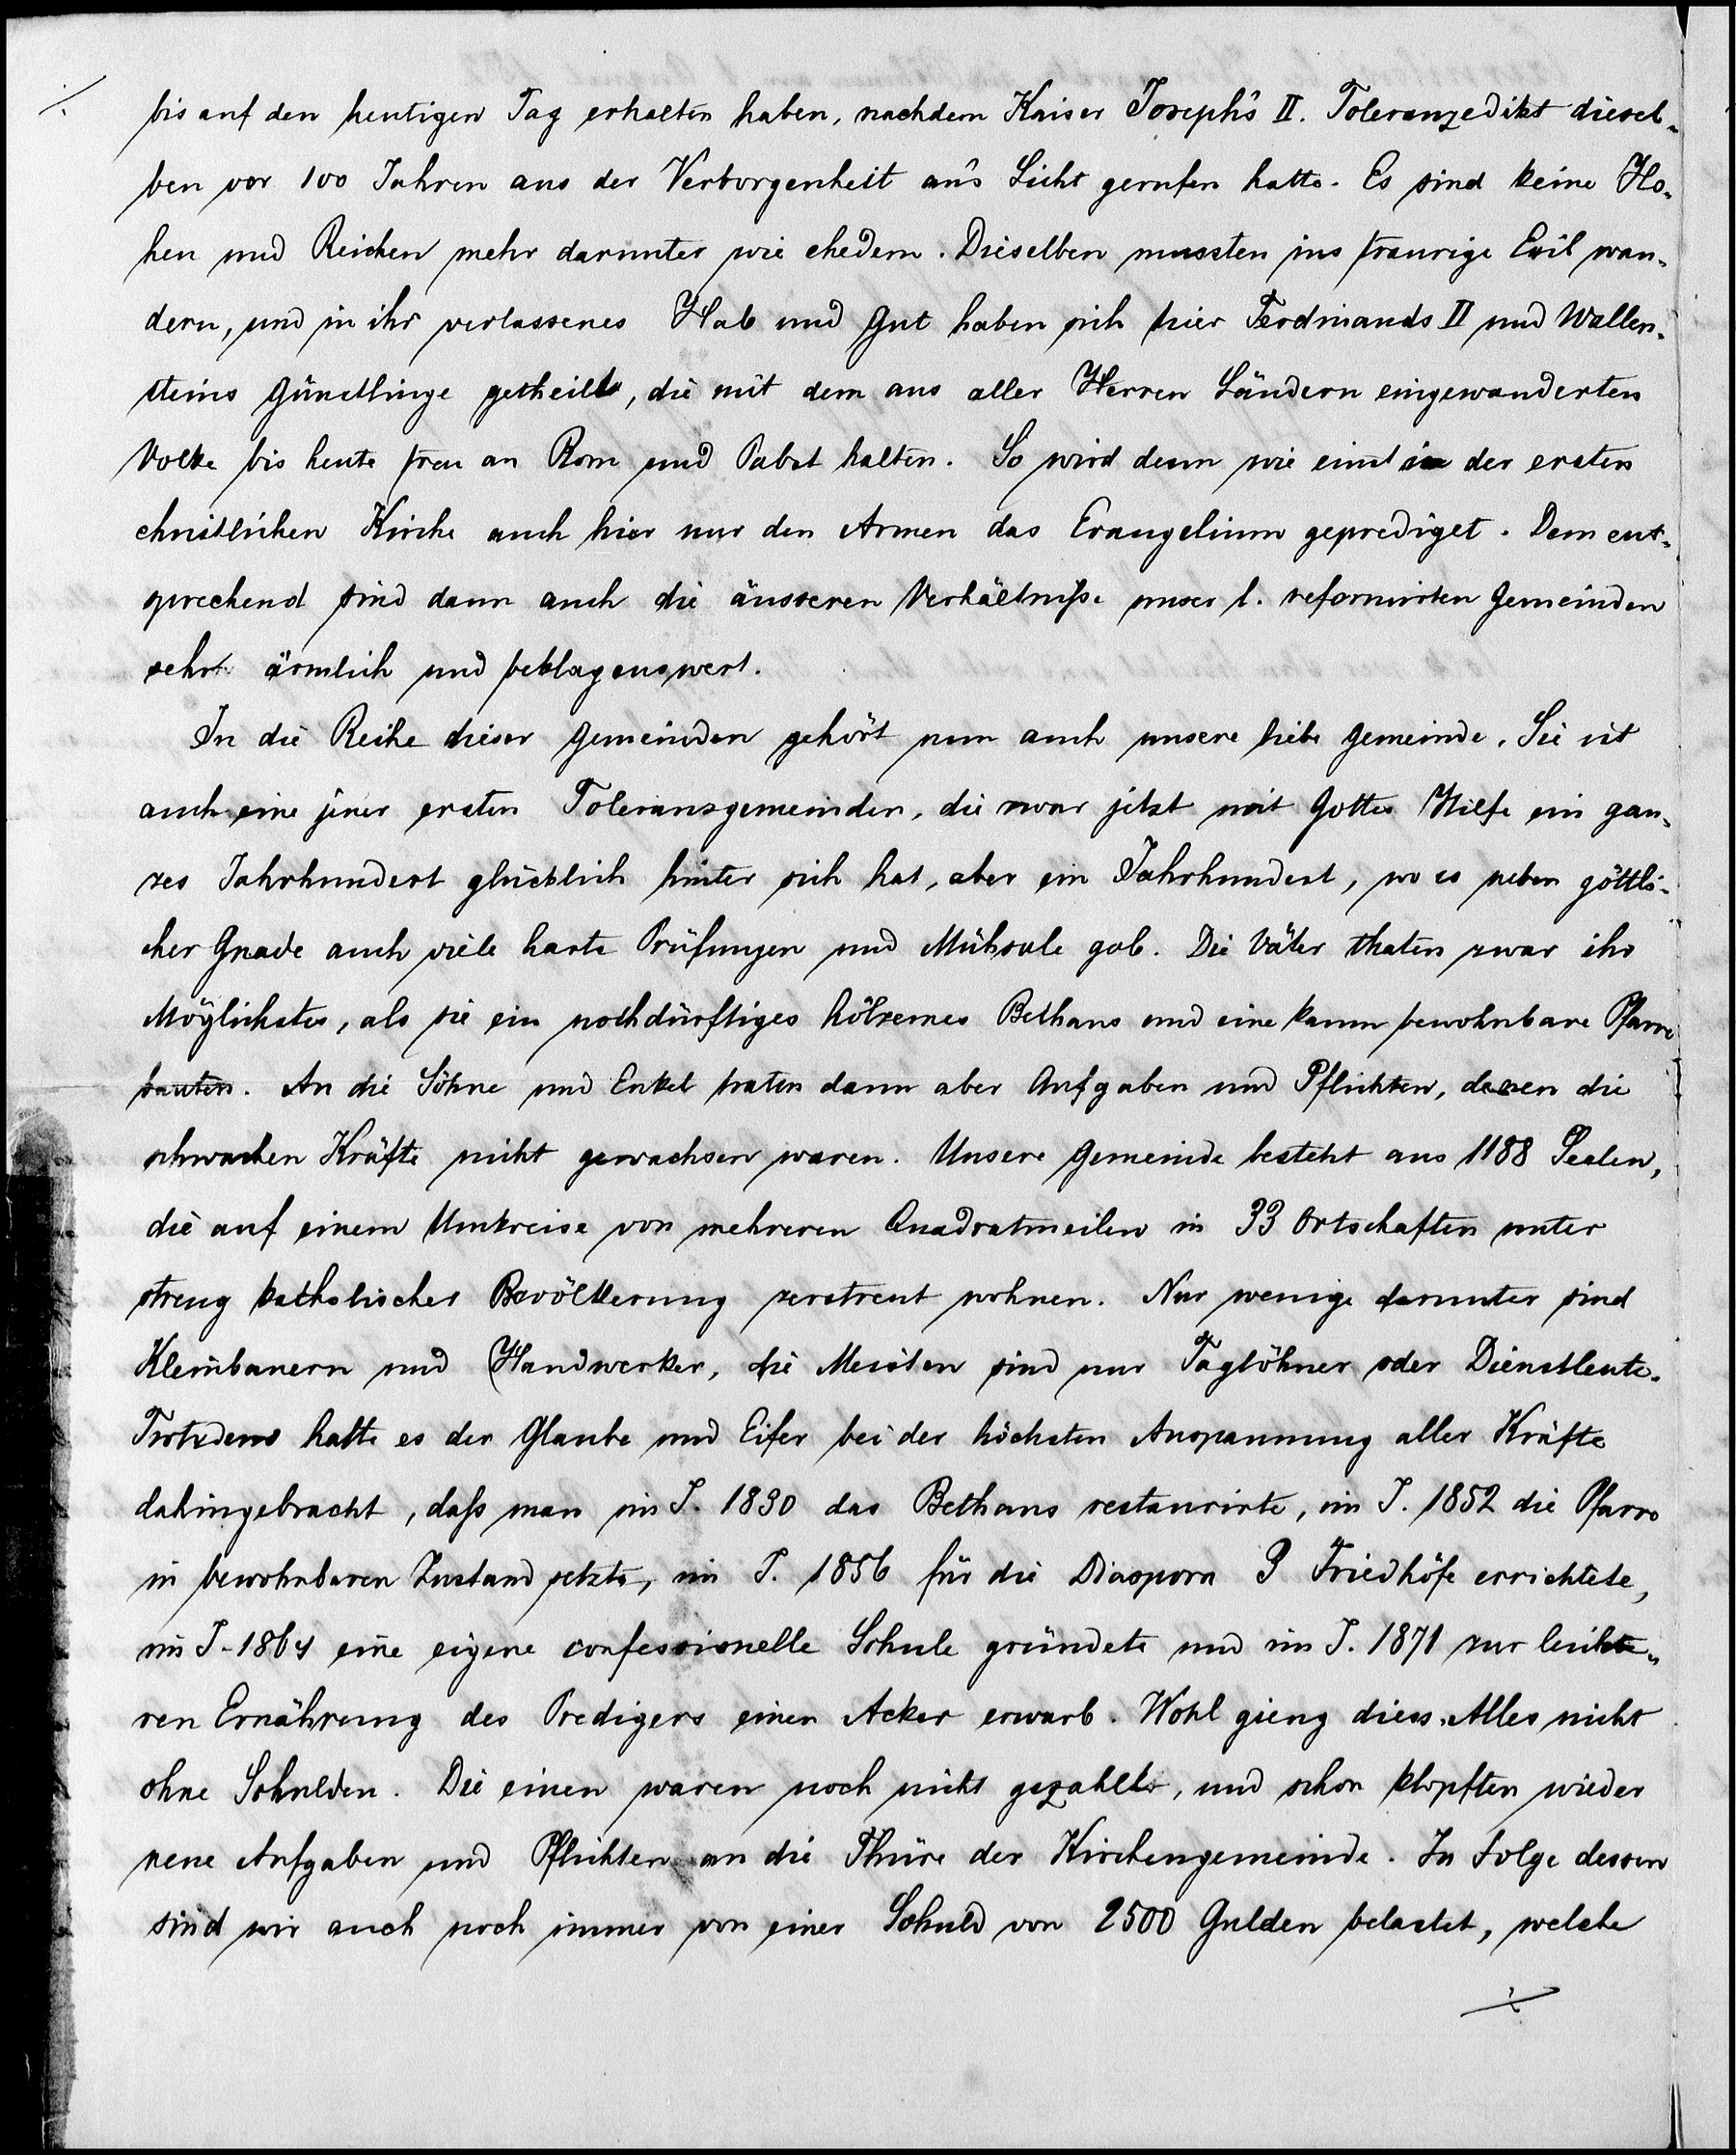 bis auf den heutigen Tag erhalten haben, nachdem Kaiser Joseph's II. Toleranzedikt diesel-
ben vor 100 Jahren aus der Verborgenheit an's Licht gerufen hatte. Es sind keine Ho-
hen und Reichen mehr darunter wie ehedem. Dieselben mussten ins traurige Exil wan-
dern, und in ihr verlassenes Hab und Gut haben sich hier Ferdinands II und Wallen-
steins Günstlinge getheilt, die mit dem aus aller Herren Ländern eingewanderten
Volke bis heute treu an Rom und Pabst halten. So wird denn wie einst in der ersten
christlichen Kirche auch hier nur den Armen das Evangelium geprediget. Dem ent-
sprechend sind dann auch die äusseren Verhältniße unser l. reformirten Gemeinden
sehr ärmlich und beklagenswert.
In die Reihe dieser Gemeinden gehört nun auch unsere liebe Gemeinde. Sie ist
auch eine jener ersten Toleranzgemeinden, die zwar jetzt mit Gottes Hilfe ein gan-
zes Jahrhundert glücklich hinter sich hat, aber ein Jahrhundert, wo es neben göttli-
cher Gnade auch viele harte Prüfungen und Mühsale gab. Die Väter thaten zwar ihr
Möglichstes, als sie ein nothdürftiges hölzernes Bethaus und eine kaum bewohnbare Pfarre
bauten. An die Söhne und Enkel traten dann aber Aufgaben und Pflichten, denen die
schwachen Kräfte nicht gewachsen waren. Unsere Gemeinde besteht aus 1188 Seelen,
die auf einem Umkreise von mehreren Quadratmeilen in 33 Ortschaften unter
streng katholischer Bevölkerung zerstreut wohnen. Nur wenige darunter sind
Kleinbauern und Handwerker, die Meisten sind nur Taglöhner oder Dienstleute.
Trotzdem hatte es der Glaube und Eifer bei der höchsten Anspannung aller Kräfte
dahingebracht, daß man im J. 1830 das Bethaus restaurirte, im J. 1852 die Pfarre
in bewohnbaren Zustand setzte, im J. 1856 für die Diaspora 3 Friedhöfe errichtete,
im J. 1864 eine eigene confessionelle Schule gründete und im J. 1871 zur leichte-
ren Ernährung des Predigers einen Acker erwarb. Wohl gieng diess Alles nicht
ohne Schulden. Die einen waren noch nicht gezahlt, und schon klopften wieder
neue Aufgaben und Pflichten an die Thüre der Kirchengemeinde. In Folge dessen
sind wir auch noch immer von einer Schuld von 2500 Gulden belastet, welche